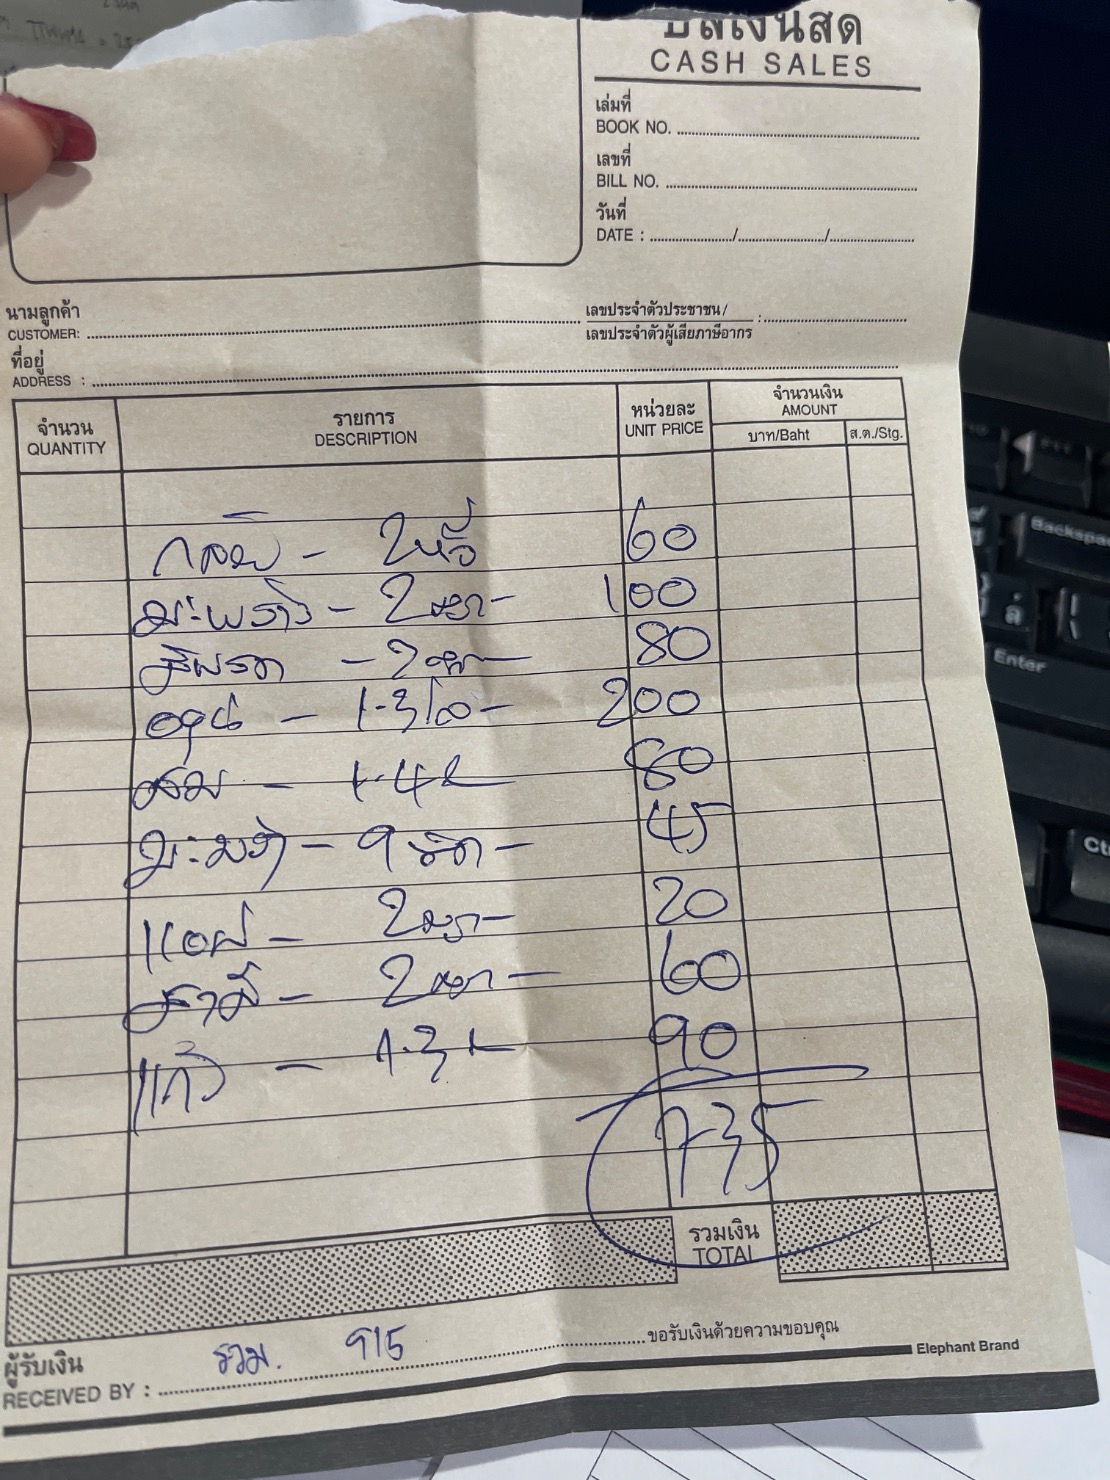 บิลเงินสด
CASH SALES
เล่มที่
BOOK NO.
เลขที่
BILL NO.
วันที่
DATE : / /
นามลูกค้า
CUSTOMER:
เลขประจำตัวประชาชน/
เลขประจำตัวผู้เสียภาษีอากร :
ที่อยู่
ADDRESS :
จำนวน รายการ หน่วยละ จำนวนเงิน
QUANTITY DESCRIPTION UNIT PRICE AMOUNT
บาท/Baht ส.ต./Stg.
- 2หวี 60
มะพร้าว - 2 - 100
- 2 80
องุ่น - 1.3 โล - 200
ส้ม - 1.4 80
- 9 - 45
แอปเ - 2 - 20
สาลี่ - 2 - 60
แก้ว - 1.3 90
735
รวมเงิน
TOTAL
รวม. 915
ผู้รับเงิน
RECEIVED BY :
ขอรับเงินด้วยความขอบคุณ
Elephant Brand